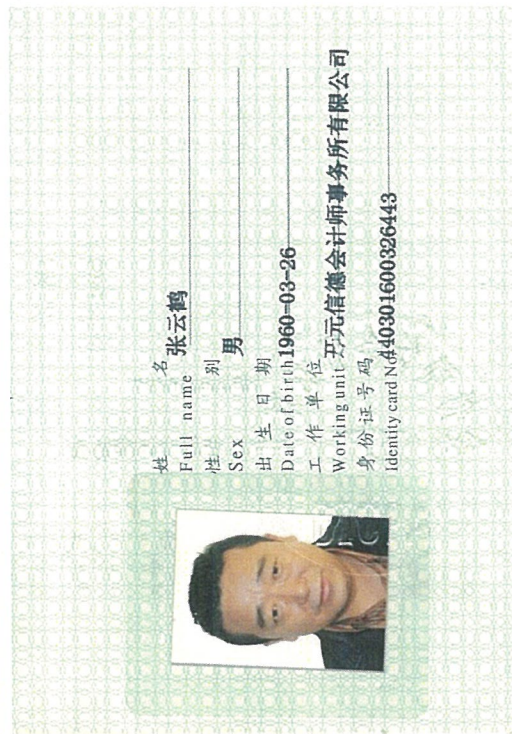 姓 名
Full name 张云鹤
性 别
Sex 男
出 生 日 期
Date of birth 1960-03-26
工 作 单 位
Working unit 开元信德会计师事务所有限公司
身 份 证 号 码
Identity card No. 440301600326443